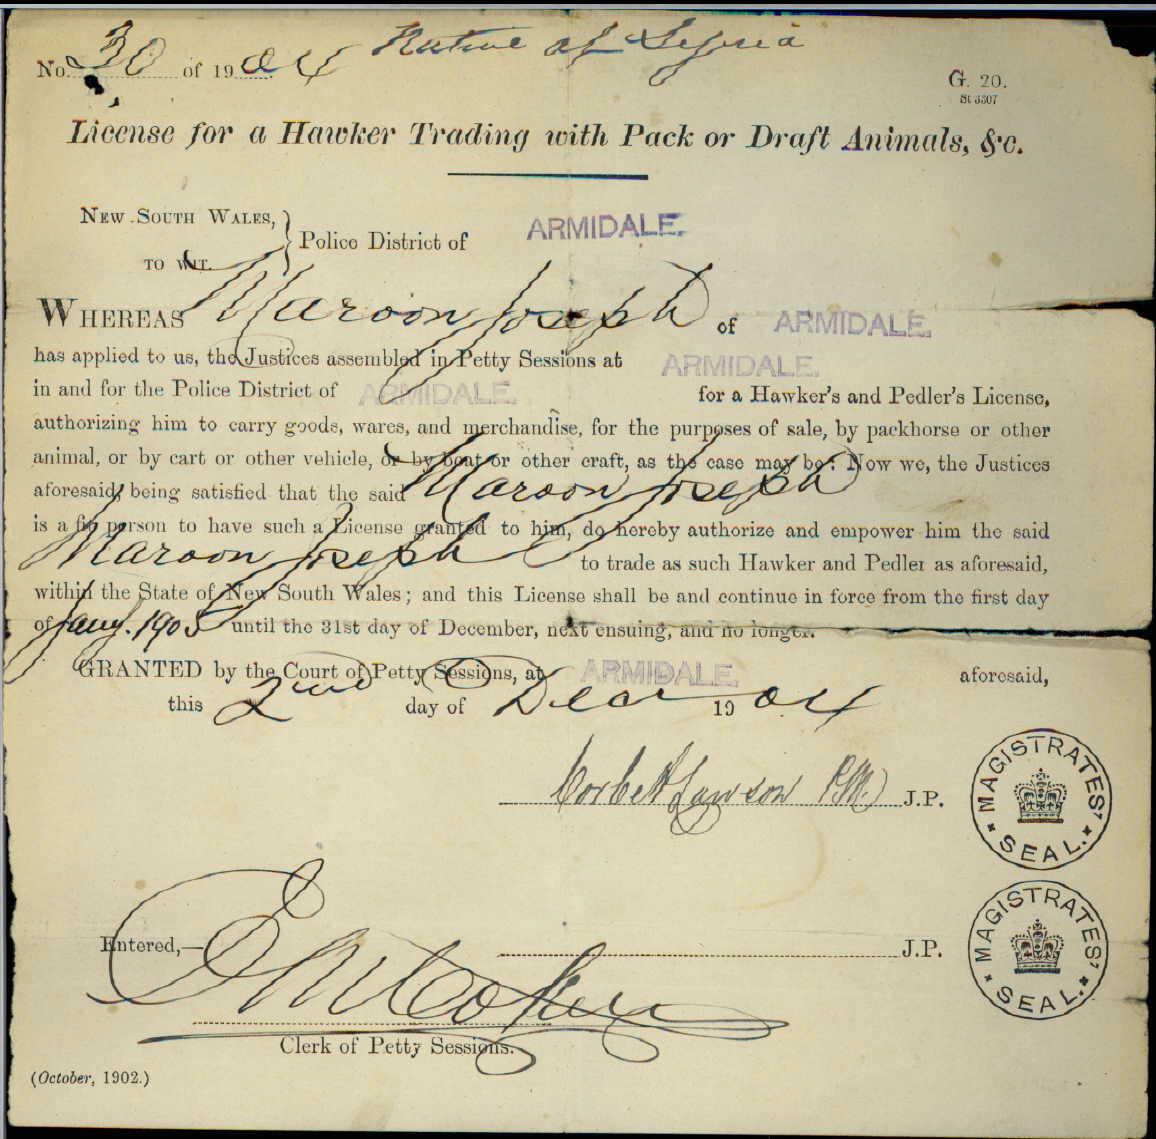 No. 30 of 1904 Native of Syria
G. 20.
St 3307
License for a Hawker Trading with Pack or Draft Animals, &c.
NEW SOUTH WALES,
TO WIT. } Police District of ARMIDALE.
WHEREAS Maroon Joseph of ARMIDALE.
has applied to us, the Justices assembled in Petty Sessions at ARMIDALE.
in and for the Police District of ARMIDALE. for a Hawker's and Pedler's License,
authorizing him to carry goods, wares, and merchandise, for the purposes of sale, by packhorse or other
animal, or by cart or other vehicle, or by boat or other craft, as the case may be: Now we, the Justices
aforesaid, being satisfied that the said Maroon Joseph
is a fit person to have such a License granted to him, do hereby authorize and empower him the said
Maroon Joseph to trade as such Hawker and Pedler as aforesaid,
within the State of New South Wales; and this License shall be and continue in force from the first day
of Jany. 1905 until the 31st day of December, next ensuing, and no longer.
GRANTED by the Court of Petty Sessions, at ARMIDALE. aforesaid,
this 2nd day of Decr 1904
Corbett Lawson P.M. J.P.
MAGISTRATES' SEAL.
Entered,— J.P.
MAGISTRATES' SEAL.
Clerk of Petty Sessions.
(October, 1902.)